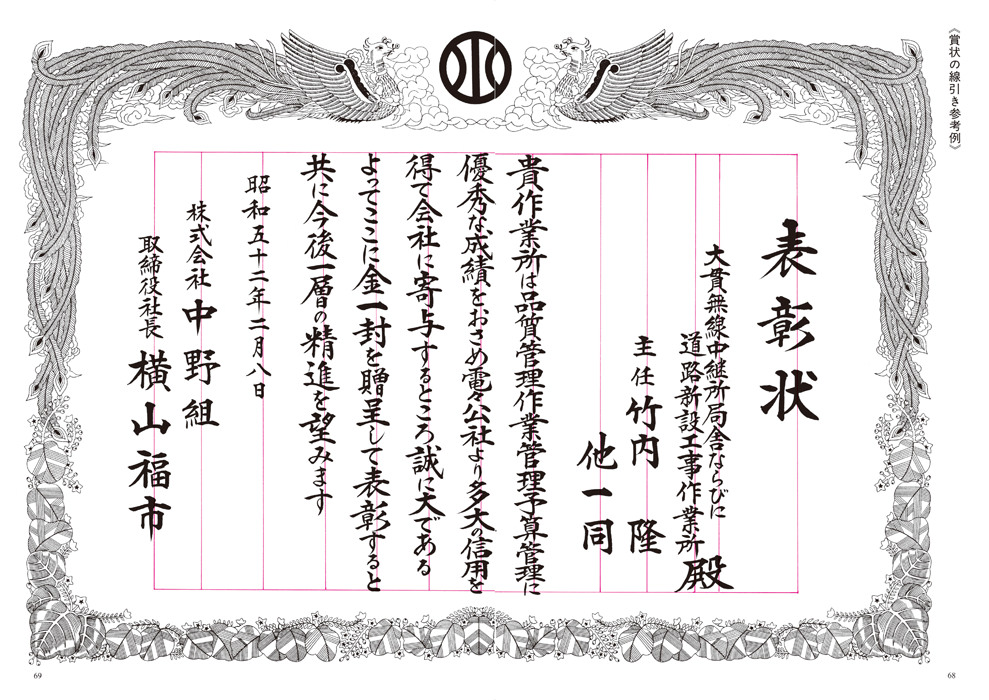 《賞状の線引き参考例》
表彰状
大貫無線中継所局舎ならびに
道路新設工事作業所 殿
主任 竹内 隆
他一同
貴作業所は品質管理作業管理予算管理に
優秀な成績をおさめ電々公社より多大の信用を
得て会社に寄与するところ誠に大である
よってここに金一封を贈呈して表彰すると
共に今後一層の精進を望みます
昭和五十二年二月八日
株式会社 中野組
取締役社長 横山福市
69
68